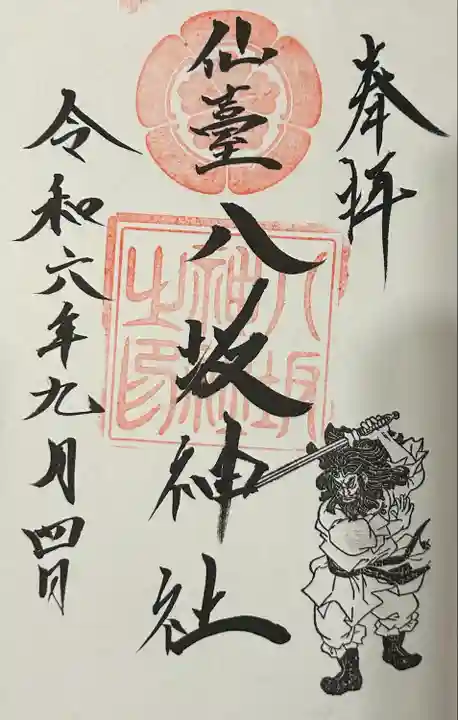 奉拝
仙臺八坂神社
八坂
神社
之印
令和六年九月四日